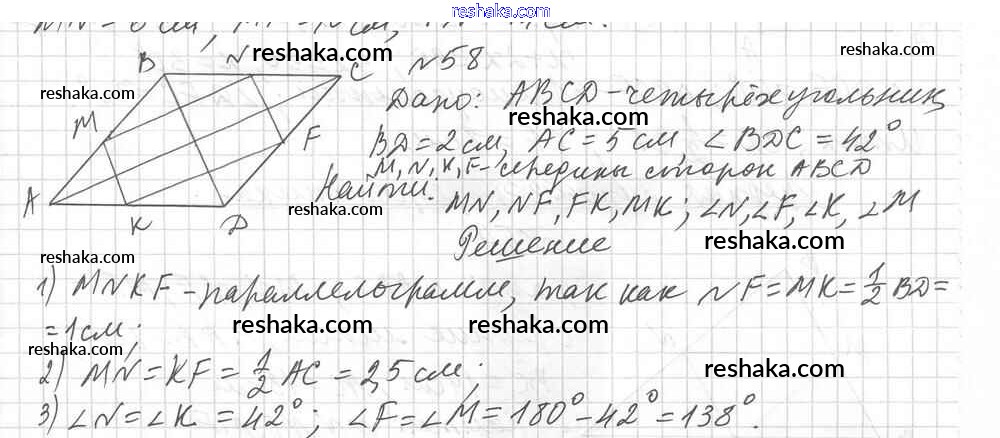 reshaka.com
MN = 6 см,
reshaka.com
reshaka.com
№58
B N C
reshaka.com
Дано: ABCD - четырёхугольник,
reshaka.com
M F
BD = 2 см, AC = 5 см, ∠BDC = 42°
reshaka.com
M, N, K, F - середины сторон ABCD
Найти:
A K D
reshaka.com
MN, NF, FK, MK; ∠N, ∠F, ∠K, ∠M
Решение
reshaka.com
reshaka.com
1) MNKF - параллелограмм, так как NF = MK = 1/2 BD =
= 1 см;
reshaka.com
reshaka.com
reshaka.com
2) MN = KF = 1/2 AC = 2,5 см;
reshaka.com
3) ∠N = ∠K = 42°; ∠F = ∠M = 180° - 42° = 138°.
reshaka.com
reshaka.com